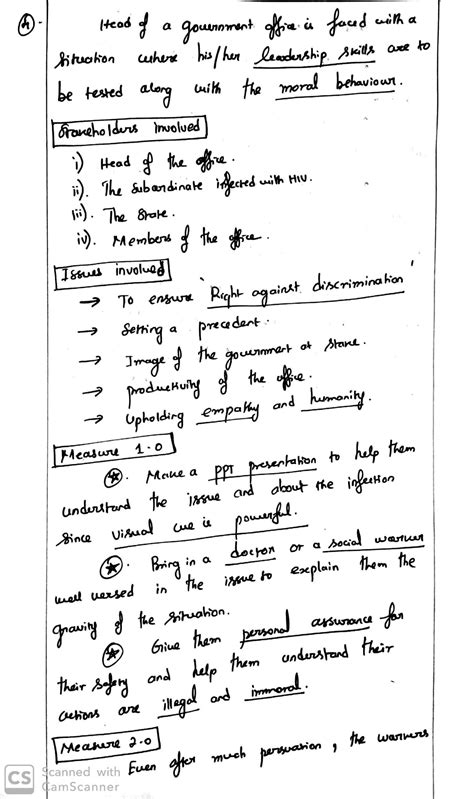 4.
Head of a government office is faced with a
situation where his/her leadership skills are to
be tested along with the moral behaviour.
Stakeholders involved
i) Head of the office.
ii). The subordinate infected with HIV.
iii). The State.
iv). Members of the office.
Issues involved
→ To ensure 'Right against discrimination'
→ Setting a precedent.
→ Image of the government at stake.
→ productivity of the office.
→ Upholding empathy and humanity.
Measure 1.0
Make a PPT presentation to help them
understand the issue and about the infection
since visual cue is powerful.
Bring in a doctor or a social worker
well versed in the issue to explain them the
gravity of the situation.
Give them personal assurance for
their safety and help them understand their
actions are illegal and immoral.
Measure 2.0
Even after much persuation, the workers
CS Scanned with
CamScanner